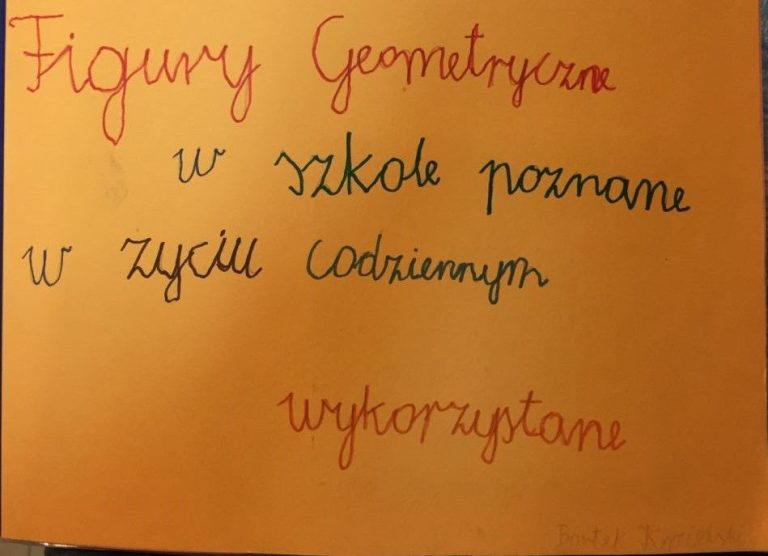 Figury Geometryczne
w szkole poznane
w życiu codziennym
wykorzystane
Bartek